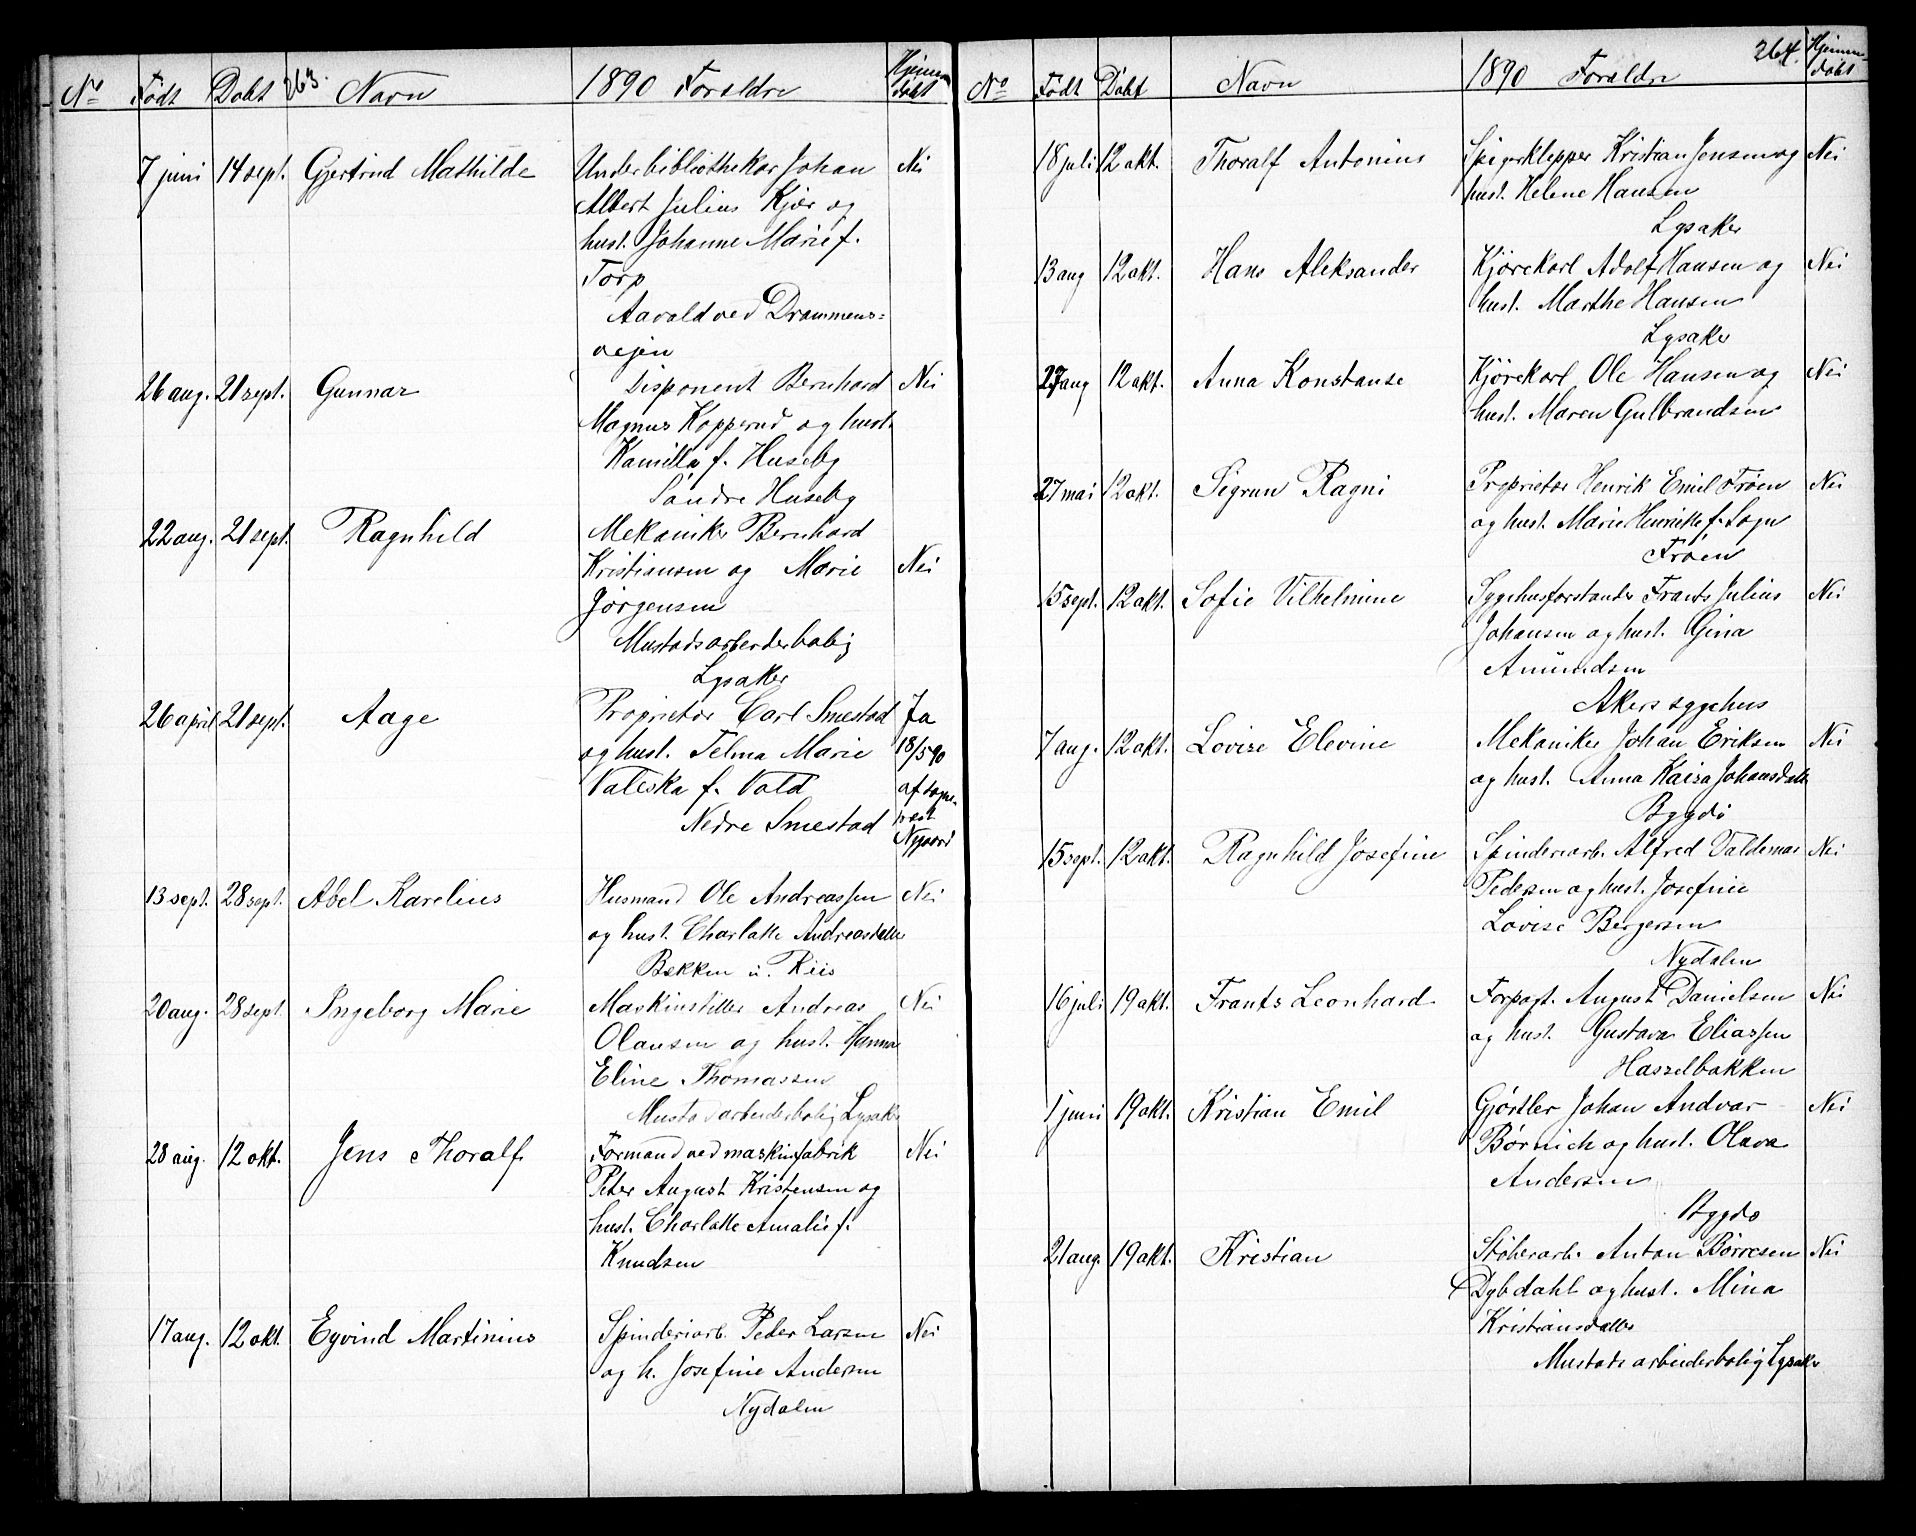 No Født Døbt 263. Navn 1890 Forældre Hjemmedøbt
7 juni 14 sept. Gjertrud Mathilde Underbibliothekar Johan Nei
Albert Julius Kjær og
hust. Johanne Marie f.
Torp
Aavold ved Drammens-
vejen
26 aug. 21 sept. Gunnar Disponent Bernhard Nei
Magnus Kopperud og hust.
Kamilla f. Huseby
Søndre Huseby
22 aug. 21 sept. Ragnhild Mekaniker Bernhard
Kristiansen og Marie Nei
Jørgensen
Mustads arbeiderbolig
Lysaker
26 april 21 sept. Aage Proprietær Carl Smestad Ja
og hust. Telma Marie 18/5 90
Valeska f. Vold af sogne-
Nedre Smestad prest
Nygaard
13 sept. 28 sept. Abel Karelius Husmand Ole Andreassen Nei
og hust. Charlotte Andreasdatter
Bækken u. Riis
20 aug. 28 sept. Ingeborg Marie Maskinstiller Andreas Nei
Olausen og hust. Hanna
Eline Thomassen
Mustad arbeiderbolig Lysaker
28 aug. 12 okt. Jens Thoralf Formand ved maskinfabrik Nei
Peter August Kristensen og
hust. Charlotte Amalie f.
Knudsen
17 aug. 12 okt. Eyvind Martinius Spinderiarb. Peder Larsen Nei
og h. Josefine Andersen
Nydalen
No Født Døbt Navn 1890 Forældre 264. Hjemmedøbt
18 juli 12 okt. Thoralf Antonius Spigerklepper Kristian Jensen og Nei
hust. Helene Hansen
Lysaker
13 aug 12 okt. Hans Aleksander Kjørekarl Adolf Hansen og Nei
hust. Marthe Hansen
Lysaker
27 aug 12 okt. Anna Konstanse Kjørekarl Ole Hansen og Nei
hust. Maren Gulbrandsen
27 mai 12 okt. Sigrun Ragni Proprietær Henrik Emil Frøen Nei
og hust. Marie Henriette f. Sogn
Frøen
15 sept. 12 okt. Sofie Vilhelmine Sygehusforstander Frants Julius Nei
Johansen og hust. Gina
Amundsen
Akers sygehus
7 aug. 12 okt. Lovise Elevine Mekaniker Johan Eriksen Nei
og hust. Anna Kaisa Johansdatter
Bygdø
15 sept. 12 okt. Ragnhild Josefine Spinderiarb. Alfred Valdemar Nei
Pedersen og hust. Josefine
Lovise Bergersen
Nydalen
16 juli 19 okt. Frants Leonhard Forpagt. August Danielsen Nei
og hust. Gustava Eliassen
Hasselbakken
1 juni 19 okt. Kristian Emil Gjørtler Johan Andvar Nei
Børnich og hust. Olava
Andersen
Bygdø
21 aug. 19 okt. Kristian Støberarb. Anton Børresen Nei
Dybdahl og hust. Mina
Kristiansdatter
Mustads arbeiderbolig Lysaker